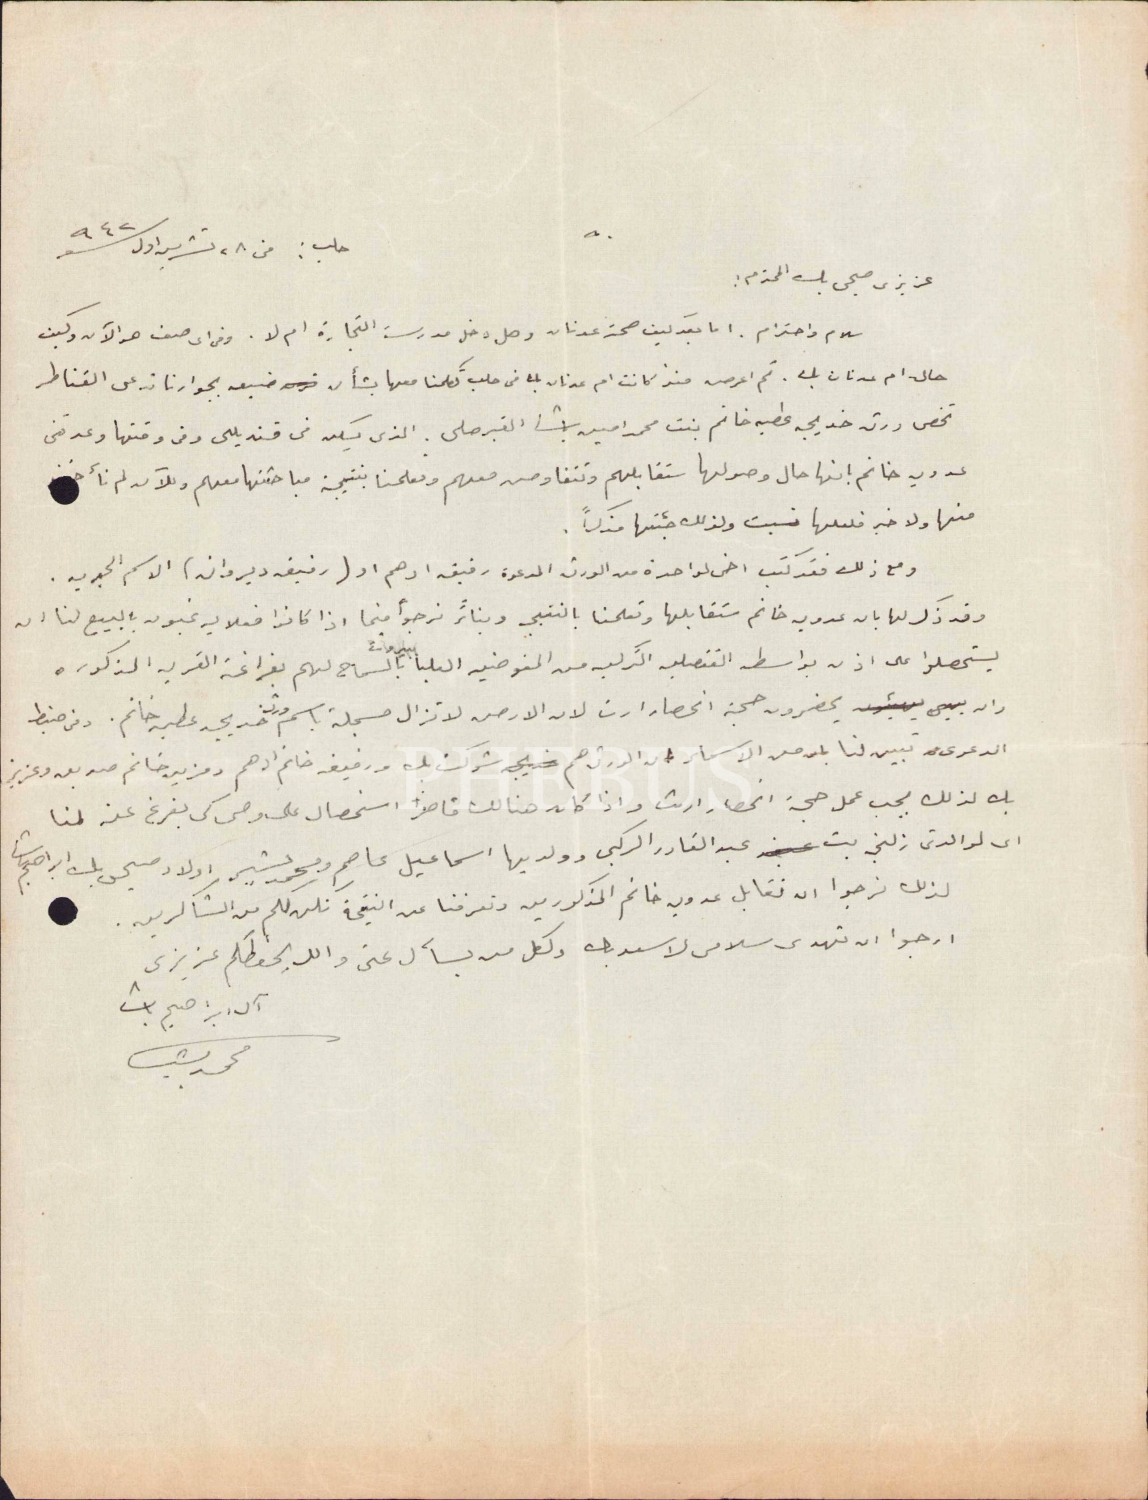 حلب: في ٢٨ تشرين اول سنه ٩٤٢
عزيزي صبحي بك المحترم:
سلام واحترام. اما بعد كيف صحة عدنان وهل دخل مدرسة التجارة ام لا. وفي اي صف هو الآن وكيف
حال ام عدنان بك. ثم اعرض منذ كانت ام عدنان بك في حلب تكلمنا معها بشأن ضيعه بجوارنا تدعى القناطر
تخص ورثة خديجه عطيه خانم بنت محمد امين باشا القبرصلي. الذي يسكن في قنديللي وفي وقتها وعدتني
عدويه خانم بانها حال وصولها ستقابلهم وتتفاوض معهم وتعلمنا بنتيجة مباحثتها معهم وللآن لم نأخذ
منها ولا خبر فلعلها نسيت ولذلك جئتها مذكراً.
ومع ذلك فقد كتب اخي لواحدة من الورثة المدعوة رفيقه ادهم او (رفيقه ديروان) الاسم الجديد.
وقد ذكر لها بان عدويه خانم ستقابلها وتعلمنا بالنتيجه وبناءً نرجوا فيما اذا كانوا فعلا يرغبون بالبيع لنا ان
يستحصلوا على اذن بواسطه القنصليه التركيه من المفوضيه العليا ببيروت بالسماح لهم بفراغة القريه المذكوره
وان يحضرون حجة انحصار ارث لان الارض لا تزال مسجلة باسم ورثة خديجه عطيه خانم. وفي ضبط
الدعوى تبين لنا بان الورثة هم شوكت بك ورفيقه خانم ادهم و خانم وعزيز
بك لذلك يجب عمل حجة انحصار ارث واذا كان هنالك قاصراً استحصال على وصي كي يفرغ عنه لنا
اي لوالدتي زليخه بنت عبد القادر الركبي وولديها اسماعيل عاصم ومحمد بشير اولاد صبحي بك ابراهيم باشا
لذلك نرجوا ان تقابل عدويه خانم المذكورين وتعرفنا عن النتيجة نكن لكم من الشاكرين.
ارجوا ان تهدي سلامي لاسعد بك ولكل من يسأل عني والله يحفظكم عزيزي
آل ابراهيم باشا
محمد بشير
PHEBUS